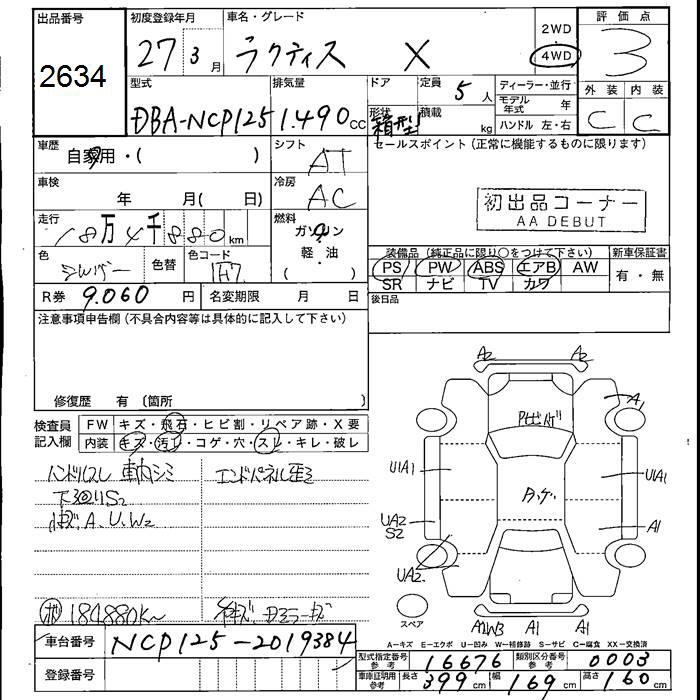 出品番号
2634
初度登録年月
27 3 月
車名・グレード
ラクティス X
2WD
4WD
評価点
3
型式
DBA-NCP125
排気量
1.490 CC
ドア
形状
箱型
定員
5 人
積載
kg
ディーラー・並行
モデル年式 年
ハンドル 左・右
外装 内装
C C
車歴
自家用・( )
シフト
AT
セールスポイント (正常に機能するものに限ります)
車検
年 月( 日)
冷房
AC
初出品コーナー
AA DEBUT
走行
18万4千880 km
燃料
ガソリン
軽・油
( )
色
シルバー
色替
色コード
1F7
装備品 (純正品に限り○をつけて下さい)
PS PW ABS エアB AW
SR ナビ TV カワ
新車保証書
有・無
R券 9.060 円
名変期限 月 日
後日品
注意事項申告欄 (不具合内容等は具体的に記入して下さい)
修復歴 有 〔箇所 〕
検査員記入欄
FW キズ・飛石・ヒビ割・リペア跡・X要
内装 キズ・汚れ・コゲ・穴・スレ・キレ・破レ
ハンドルスレ 車内シミ
下廻りS2
A.U.W2
エンドパネル歪ミ
184880K~
A2 A2
A1
U1A1
U1A1
UA2
S2
A1
UA2
スペア
A1W3 A1 A1
A-キズ E-エクボ U-凹み W-補修跡 S-サビ C-腐食 XX-交換済
車台番号 NCP125-2019384
登録番号
型式指定番号 参考 16676
類別区分番号 参考 0003
車庫証明用 参考 長さ 399 cm 幅 169 cm 高さ 160 cm